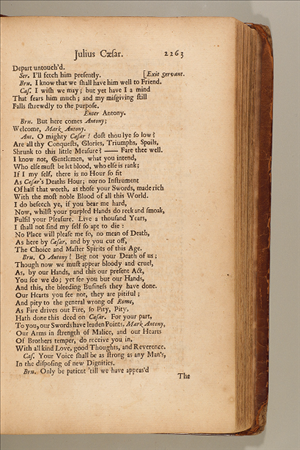 Julius Cæsar. 2263
Depart untouch'd.
Ser. I'll fetch him presently. [Exit Servant.
Bru. I know that we shall have him well to Friend.
Cas. I wish we may; but yet have I a mind
That fears him much; and my misgiving still
Falls shrewdly to the purpose.
Enter Antony.
Bru. But here comes Antony;
Welcome, Mark Antony.
Ant. O mighty Cæsar! dost thou lye so low?
Are all thy Conquests, Glories, Triumphs, Spoils,
Shrunk to this little Measure? —— Fare thee well.
I know not, Gentlemen, what you intend,
Who else must be let blood, who else is rank;
If I my self, there is no Hour so fit
As Cæsar's Deaths Hour; nor no Instrument
Of half that worth, as those your Swords, made rich
With the most noble Blood of all this World.
I do beseech ye, if you bear me hard,
Now, whilst your purpled Hands do reek and smoak,
Fulfil your Pleasure. Live a thousand Years,
I shall not find my self so apt to die:
No Place will please me so, no mean of Death,
As here by Cæsar, and by you cut off,
The Choice and Master Spirits of this Age.
Bru. O Antony! Beg not your Death of us;
Though now we must appear bloody and cruel,
As, by our Hands, and this our present Act,
You see we do; yet see you but our Hands,
And this, the bleeding Business they have done.
Our Hearts you see not, they are pitiful;
And pity to the general wrong of Rome,
As Fire drives out Fire, so Pity, Pity,
Hath done this deed on Cæsar. For your part,
To you, our Swords have leaden Points, Mark Antony,
Our Arms in strength of Malice, and our Hearts
Of Brothers temper, do receive you in,
With all kind Love, good Thoughts, and Reverence.
Cas. Your Voice shall be as strong as any Man's,
In the disposing of new Dignities.
Bru. Only be patient 'till we have appeas'd
The